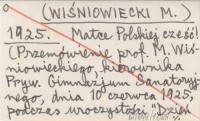 (WIŚNIOWIECKI M.)
1925. Matce Polskiej cześć!
(Przemówienie prof. M. Wiś-
niowieckiego, kierownika
Pryw. Gimnazjum Sanatoryj-
nego, dnia 10 czerwca 1925,
podczas uroczystości "Dzień